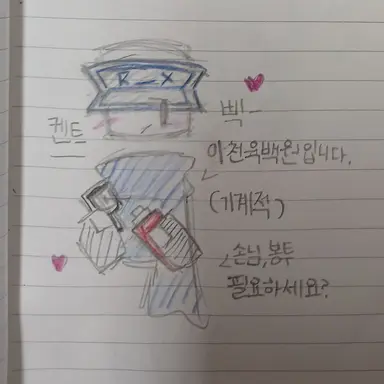 R_X
켄트
삑-
이천육백원입니다.
(기계적)
손님,봉투
필요하세요?